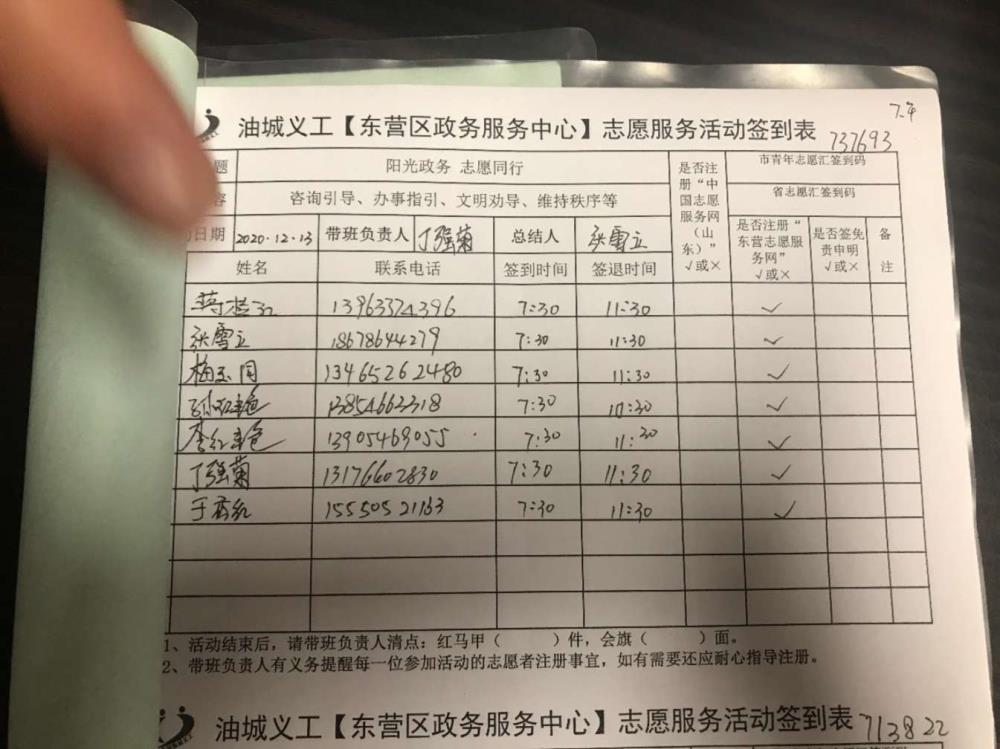 7.4
油城义工【东营区政务服务中心】志愿服务活动签到表 737693
题 阳光政务 志愿同行 是否注册“中国志愿服务网（山东）”√或× 市青年志愿汇签到码
容 咨询引导、办事指引、文明劝导、维持秩序等 省志愿汇签到码
日期 2020.12.13 带班负责人 丁强菊 总结人 张雪立 是否注册“东营志愿服务网”√或× 是否签免责申明√或× 备注
姓名 联系电话 签到时间 签退时间
蒋 13963374396 7:30 11:30 ✓
张雪立 18678644279 7:30 11:30 ✓
梅玉同 13465262480 7:30 11:30 ✓
13854662318 7:30 10:30 ✓
李红艳 13905469055 7:30 11:30 ✓
丁强菊 13176602830 7:30 11:30 ✓
于 红 15550521163 7:30 11:30 ✓
1、活动结束后，请带班负责人清点：红马甲（ ）件，会旗（ ）面。
2、带班负责人有义务提醒每一位参加活动的志愿者注册事宜，如有需要还应耐心指导注册。
油城义工【东营区政务服务中心】志愿服务活动签到表 713822